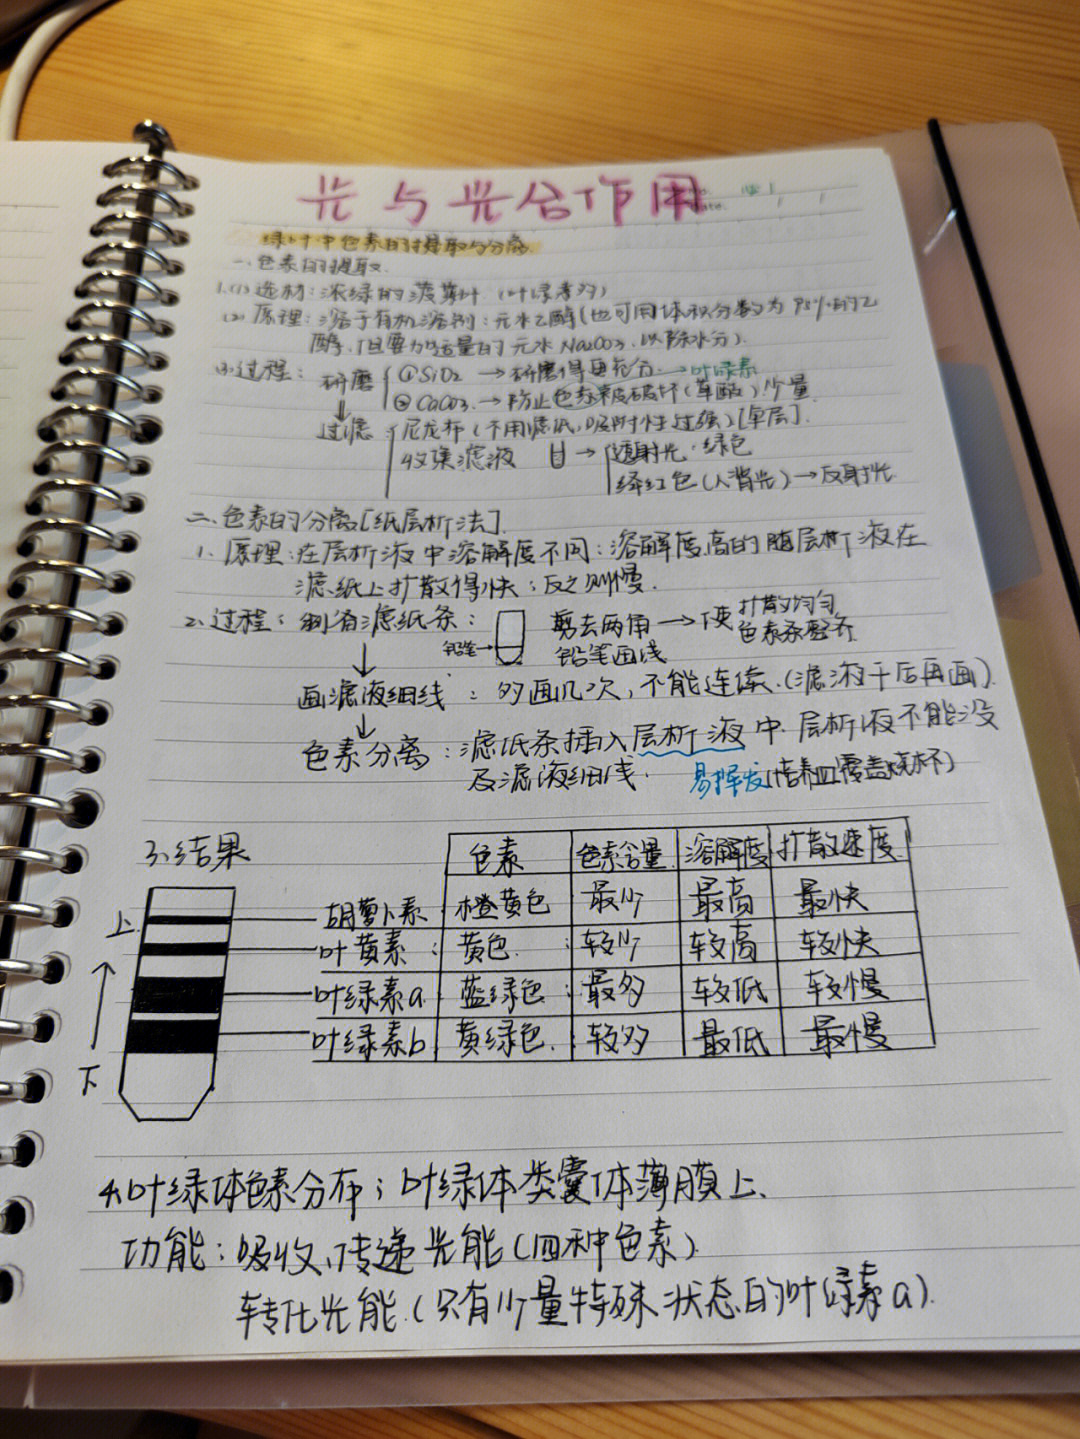 光与光合作用
绿叶中色素的提取与分离
一、色素的提取
1.(1)选材：浓绿的菠菜叶（叶绿素多）
(2)原理：溶于有机溶剂：无水乙醇(也可用体积分数为95%的乙
醇，但要加适量的无水Na2CO3，以除水分).
(3)过程：研磨 ①SiO2 → 研磨得更充分 → 叶绿素
②CaCO3 → 防止色素被破坏（草酸）少量
过滤 尼龙布（不用滤纸，吸附性过强）[单层].
收集滤液 → 透射光：绿色
绛红色（人背光）→反射光
二、色素的分离[纸层析法].
1. 原理：在层析液中溶解度不同：溶解度高的随层析液在
滤纸上扩散得快；反之则慢.
2. 过程：制备滤纸条： 铅笔→ 剪去两角 → 使扩散均匀
铅笔画线 色素条整齐
↓
画滤液细线：多画几次，不能连续.（滤液干后再画）.
↓
色素分离：滤纸条插入层析液中.层析液不能没
及滤液细线. 易挥发(培养皿覆盖烧杯)
3.结果
色素 色素含量 溶解度 扩散速度
上 胡萝卜素 橙黄色 最少 最高 最快
叶黄素： 黄色 较少 较高 较快
叶绿素a 蓝绿色 最多 较低 较慢
下 叶绿素b 黄绿色 较多 最低 最慢
4.叶绿体色素分布；叶绿体类囊体薄膜上.
功能：吸收、传递光能（四种色素）.
转化光能.（只有少量特殊状态的叶绿素a）.